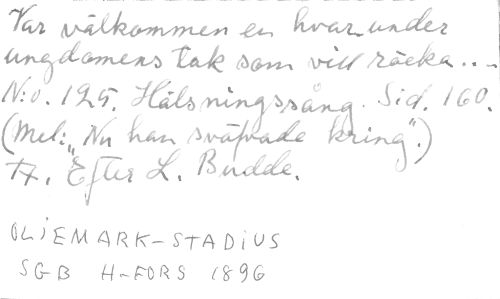 Var välkommen en hvar under
ungdomens tak som vill räcka...
N:o. 125. Hälsningssång. Sid. 160.
(Mel: „Nu han sväfvade kring".)
Tx. Efter L. Budde.
OLJEMARK-STADIUS
SGB H-FORS 1896